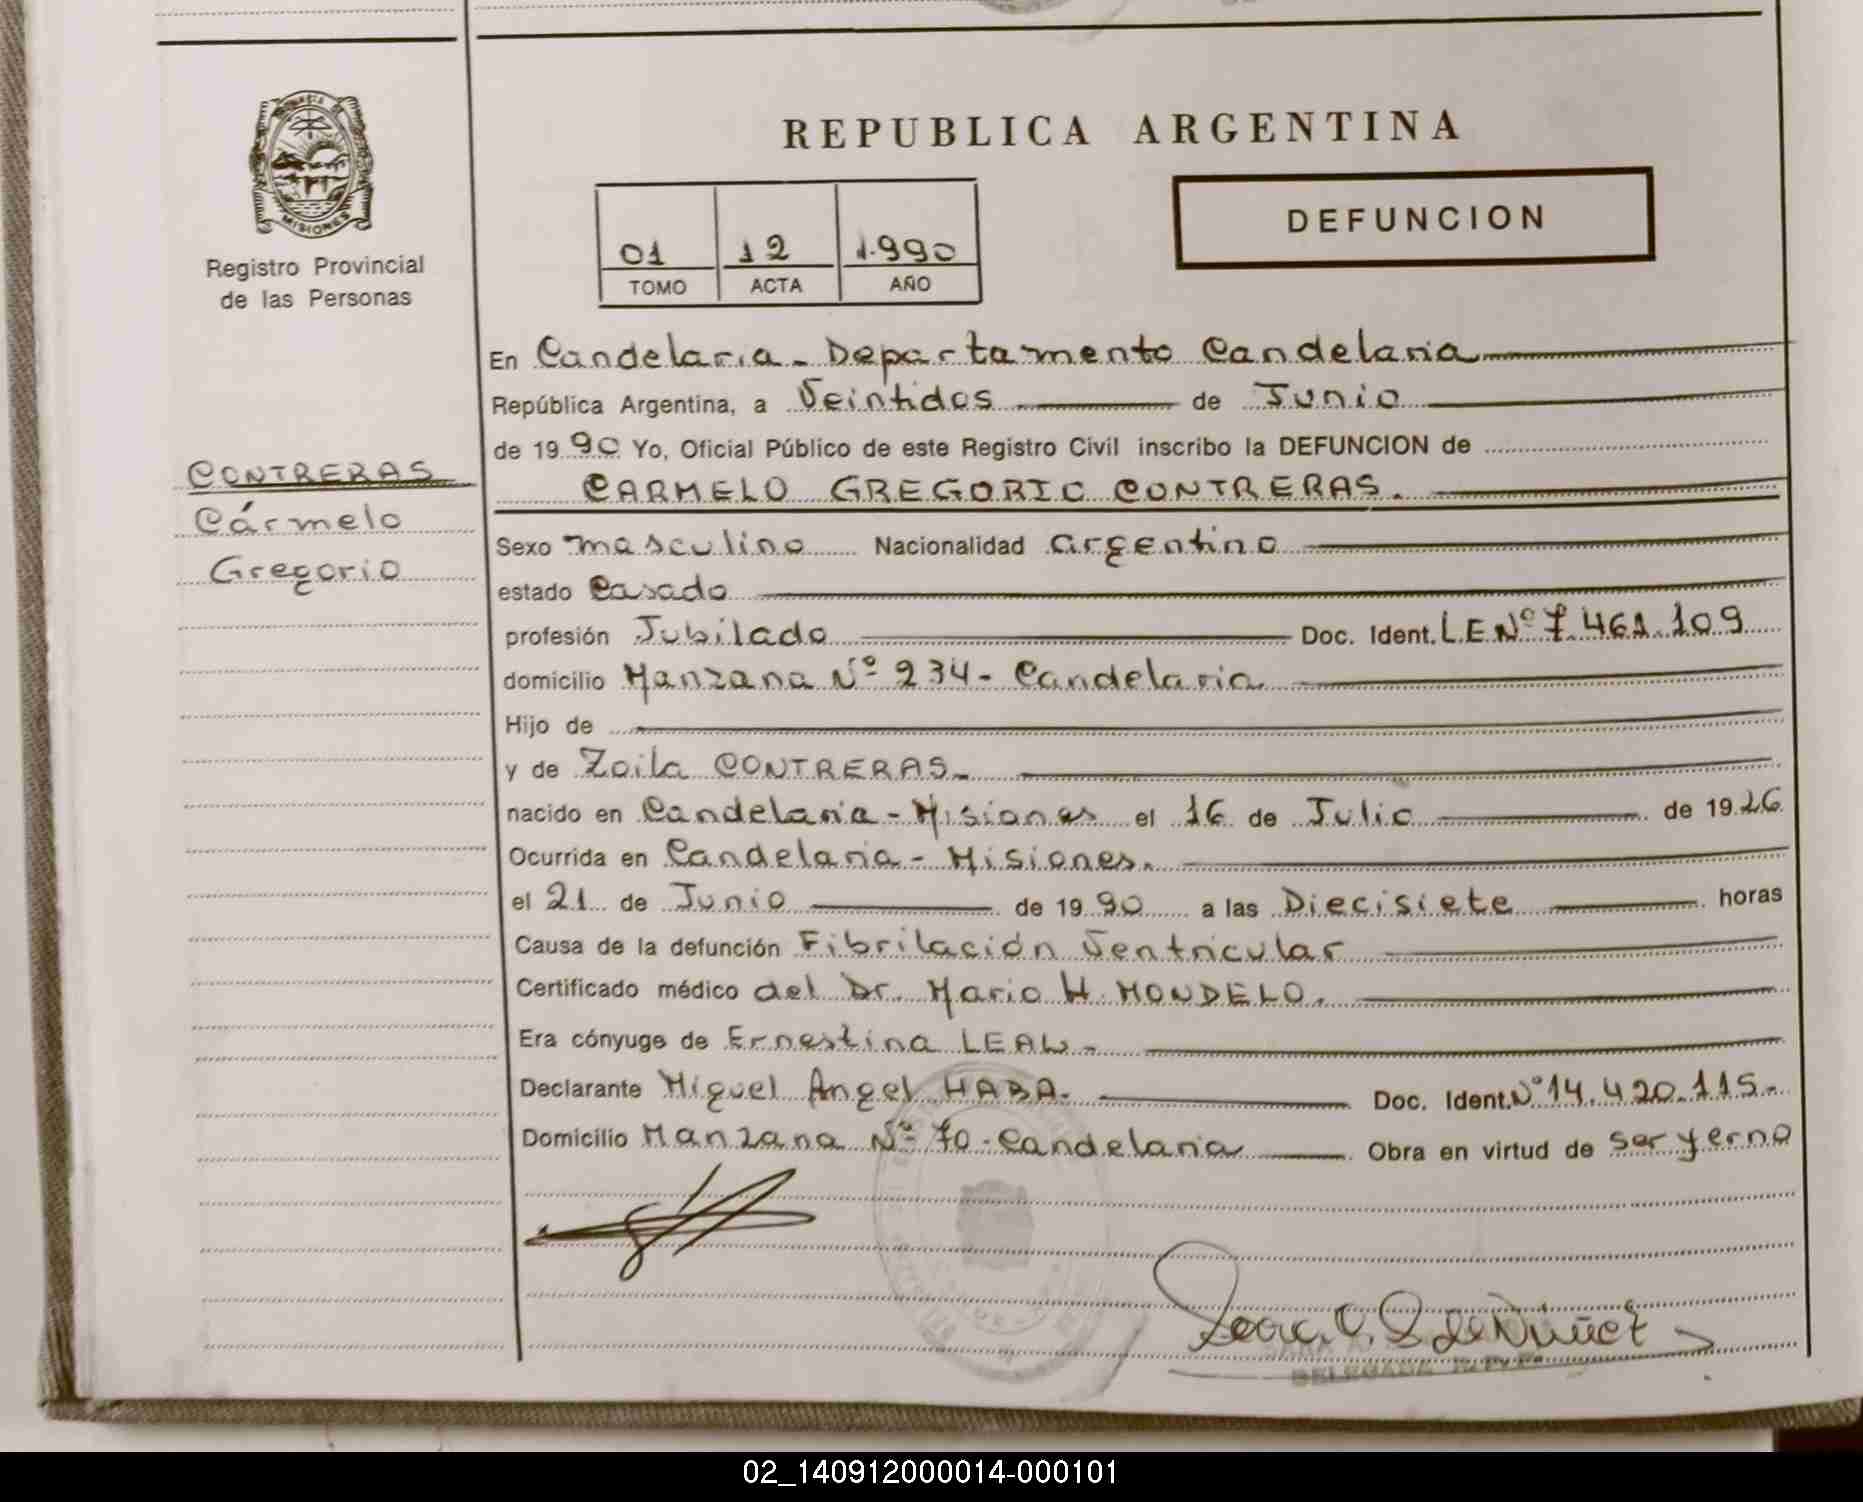 MISIONES
Registro Provincial
de las Personas
CONTRERAS
Cármelo
Gregorio
REPUBLICA ARGENTINA
01 12 1.990
TOMO ACTA AÑO
DEFUNCION
En Candelaria - Departamento Candelaria
República Argentina, a Veintidos de Junio
de 19 90 Yo, Oficial Público de este Registro Civil inscribo la DEFUNCION de
CARMELO GREGORIO CONTRERAS.
Sexo masculino Nacionalidad argentino
estado Casado
profesión Jubilado Doc. Ident. L.E.Nº 7.461.109
domicilio Manzana Nº 234 - Candelaria
Hijo de
y de Zoila CONTRERAS.-
nacido en Candelaria - Misiones el 16 de Julio de 19 26
Ocurrida en Candelaria - Misiones.
el 21 de Junio de 19 90 a las Diecisiete horas
Causa de la defunción Fibrilación Ventricular
Certificado médico del Dr. Mario H. MONDELO.
Era cónyuge de Ernestina LEAL.-
Declarante Miguel Angel HABA. Doc. Ident. Nº 14.420.115.-
Domicilio Manzana Nº 70 - Candelaria Obra en virtud de ser yerno
de Nuñez
DELEGADA
02_140912000014-000101